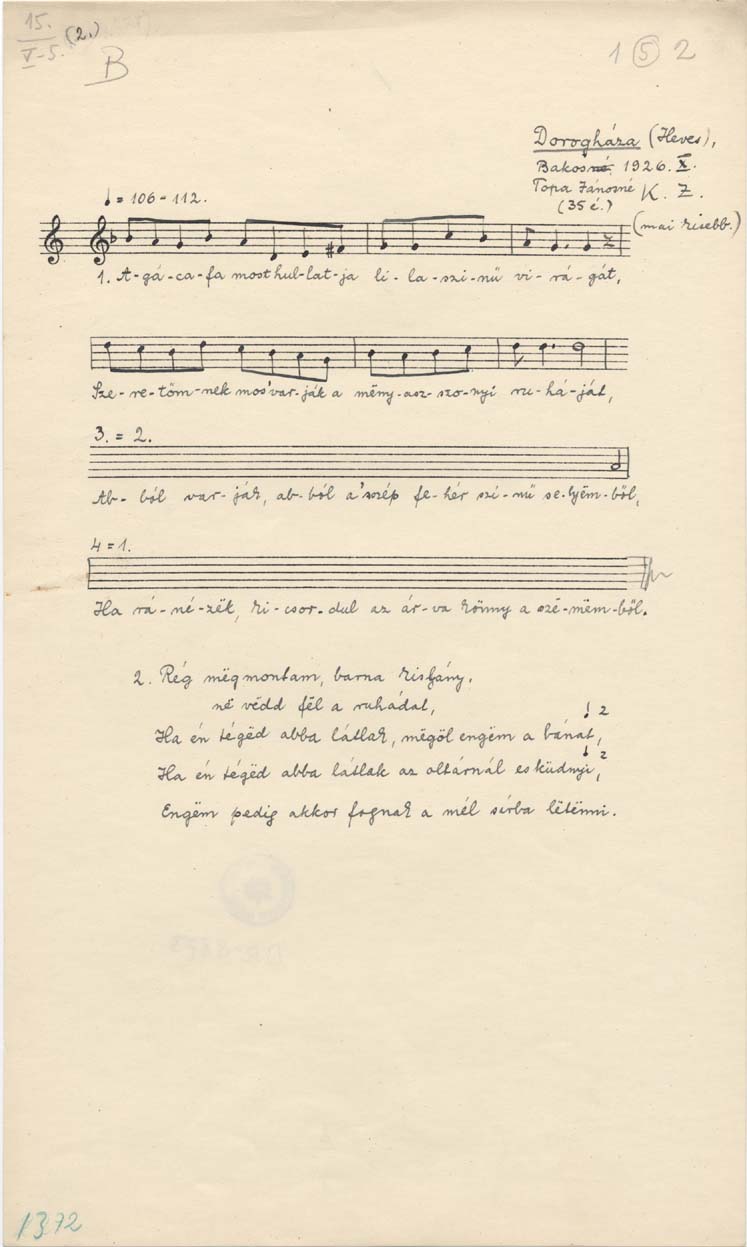 15.
V-5. (2.)
B
1 5 2
Dorogháza (Heves),
Bakosné 1926. X.
Topa Jánosné K. Z.
(35 é.)
(mai kisebb.)
= 106-112.
1. A-gá-ca-fa most hul-lat-ja li-la-szi-nű vi-rá-gát,
Sze-re-töm-nek mos' var-ják a mëny-asz-szo-nyi ru-há-ját,
3. = 2.
Ab-ból var-ják, ab-ból a' szép fe-hér szi-nű se-lyëm-ből,
4 = 1.
Ha rá-né-zëk, ki-csor-dul az ár-va könny a szë-mëm-ből.
2. Rég mëgmontam, barna kislány,
në vëdd fël a ruhádat,
2
Ha én tégëd abba látlak, mëgöl engëm a bánat,
2
Ha én tégëd abba látlak az oltárnál esküdnyi,
Engëm pedig akkor fognak a mél sírba lëtënni.
1372